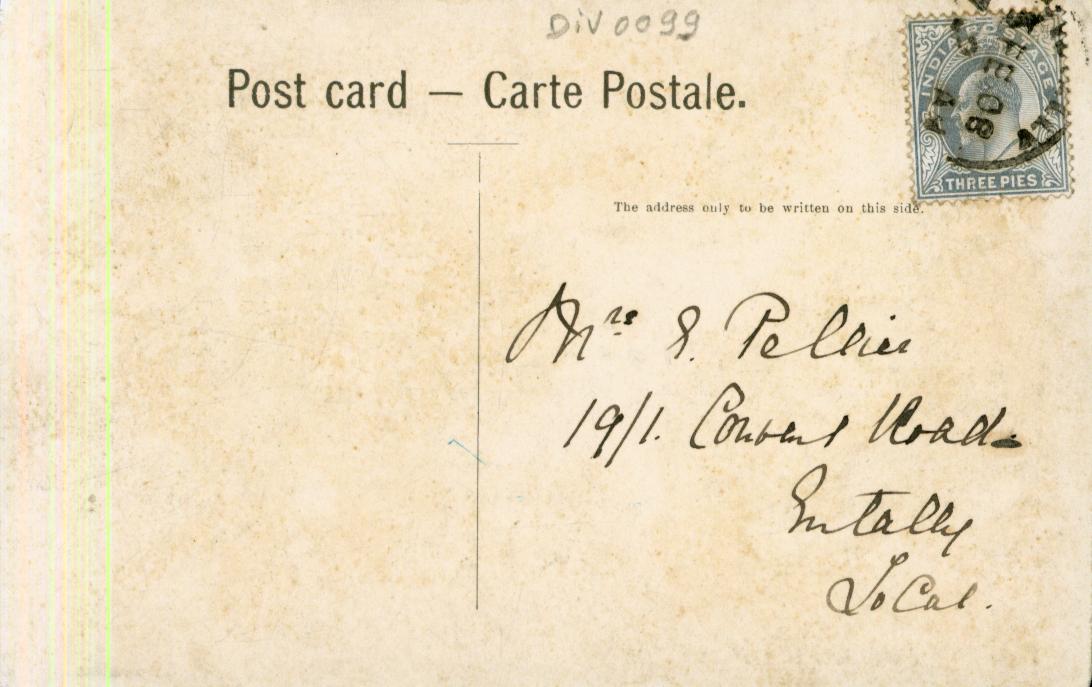 DiV 0099
Post card — Carte Postale.
INDIA POSTAGE
THREE PIES
08
The address only to be written on this side.
Mrs E. Pellier
19/1. Convent Road
Entally
Local.